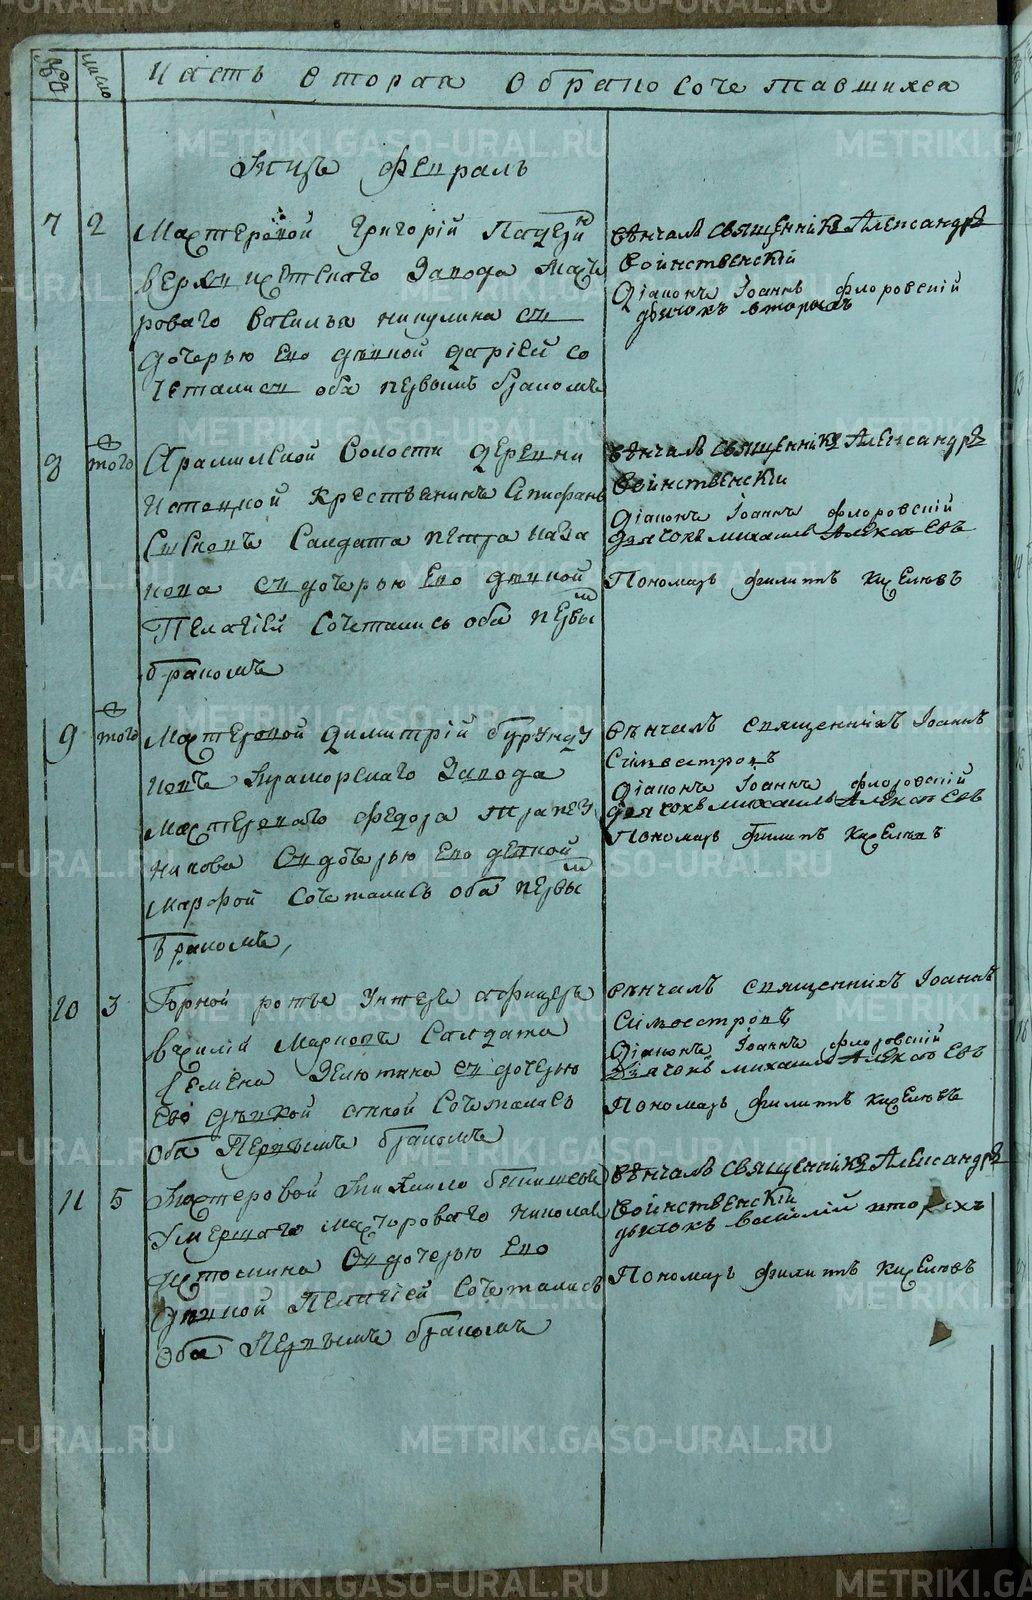 Часть вторая О бракосочетавшихся
число
Мцъ февраль
7 2 Мастеровой Григорій
Верхисетскаго завода Масте
роваго Василья Никулина съ
дочерью Его дѣвкой Даріей со
четались оба первымъ бракомъ
вѣнчалъ священникъ Александръ
Воинственскій
Діаконъ Іоаннъ Флоровскій
дьячокъ Вторыхъ
8 того Арамильской волости деревни
Истоцкой крестьянинъ Епифанъ
Солдата Петра Каза
кова съ дочерью Его дѣвкой
Пелагіей сочетались оба первы
бракомъ
вѣнчалъ священникъ Александръ
Воинственскій
Діаконъ Іоаннъ Флоровскій
дьячокъ михаилъ Алексѣевъ
Пономарь Филиппъ Киселевъ
9 того Мастеровой Димитрій Бурунду
ковъ Мраморскаго завода
Мастероваго Федора Трапез
никова съ дочерью Его дѣвкой
Марфой сочетались оба первы
бракомъ,
вѣнчалъ священникъ Іоаннъ
Сильвестровъ
Діаконъ Іоаннъ Флоровскій
дьячокъ михаилъ Алексѣевъ
Пономарь Филиппъ Киселевъ
10 3 Горной роты Унтеръ афицеръ
Василій Марковъ Салдата
Семена съ дочерью
Его дѣвкой Анной Сочетались
Оба Первымъ бракомъ
вѣнчалъ священникъ Іоаннъ
Сильвестровъ
Діаконъ Іоаннъ Флоровскій
Дьячокъ михаилъ Алексѣевъ
Пономарь Филиппъ Киселевъ
11 5 Мастеровой Михаило
Умершаго Мастероваго Николая
съ дочерью Его
дѣвкой Пелагіей Сочетались
Оба Первымъ бракомъ
вѣнчалъ священникъ Александръ
Воинственскій
дьячокъ Василій вторыхъ
Пономарь Филиппъ Киселевъ
METRIKI.GASO-URAL.RU